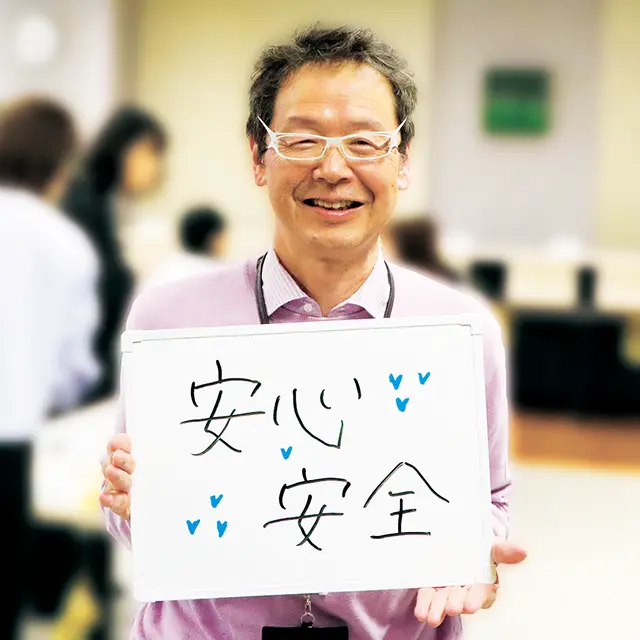 安心
安全